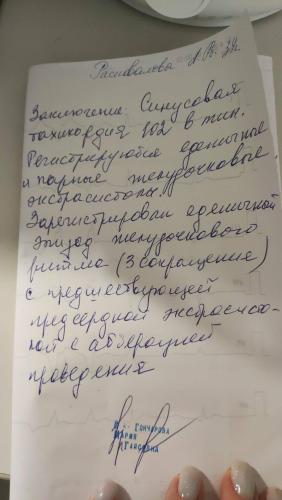 Заключение. Синусовая
тахикардия 102 в мин.
Регистрируются единичные
и парные желудочковые
экстрасистолы.
Зарегистрирован единичный
эпизод желудочкового
ритма (3 сокращения)
с предшествующей
предсердной экстрасисто-
лой с аберрацией
проведения
ГОНЧАРОВА
МАРИЯ